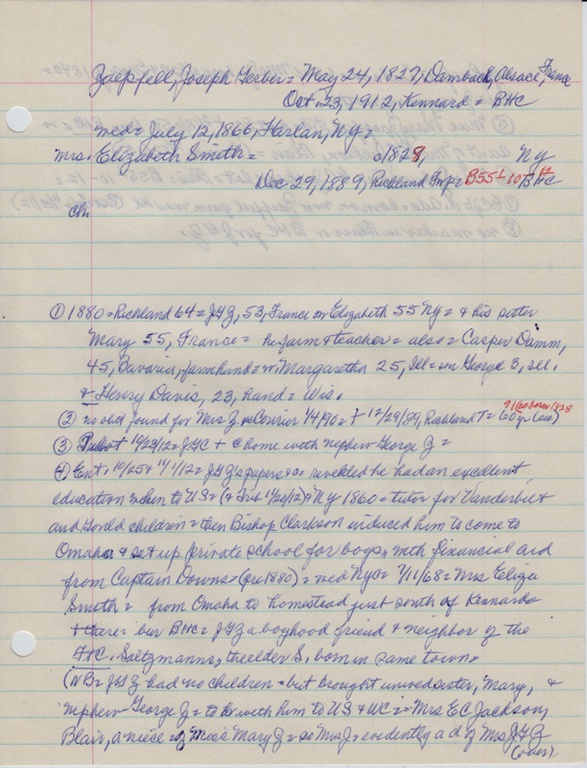 Zaepfell, Joseph Gerber = May 24, 1827, Dambach, Alsace, France
Oct. 23, 1912, Kennard = BHC
med = July 12, 1866, Harlan, NY =
Mrs. Elizabeth Smith = a1828, NY
Dec 29, 1889, Richland Twp = B55 L 10 BHC
Ch:
① 1880 = Richland 64 = JGZ, 53, France = Elizabeth 55 NY = & his sister
Mary 55, France = he farm & teacher = also = Casper Damm,
45, Bavaria, farmhand = w. Margaretha 25, Ill = son George 3, Ill.
& Henry Davis, 23, hand = Wis.
② no obit found for Mrs Z = Courier 1/4/90 = + 12/29/89, Richland T = 60 yr
③ 10/23/12 = JGZ + @ home with nephew George Z =
④ Ent = 10/25 & 11/1/12 = JGZ's papers revealed he had an excellent
education when to US = (& 11/20/12) & NY 1860 = tutor for Vanderbilt
and Gould children = then Bishop Clarkson induced him to come to
Omaha & set up private school for boys, with financial aid
from Captain Downs = (pre 1880) = med NYC = 7/11/68 = Mrs Eliza
Smith = from Omaha to homestead just south of Kennard =
+ there = bur BHC = JGZ a boyhood friend & neighbor of the
Saltzmanns, the elder S. born in same town =
(NB = JGZ had no children = but brought unwed sister, Mary, &
nephew = George Z = to with him to US & WC = Mrs E C Jackson,
Blair, a niece of Miss Mary Z = so Mrs J evidently a d of Mrs JGZ
(over)